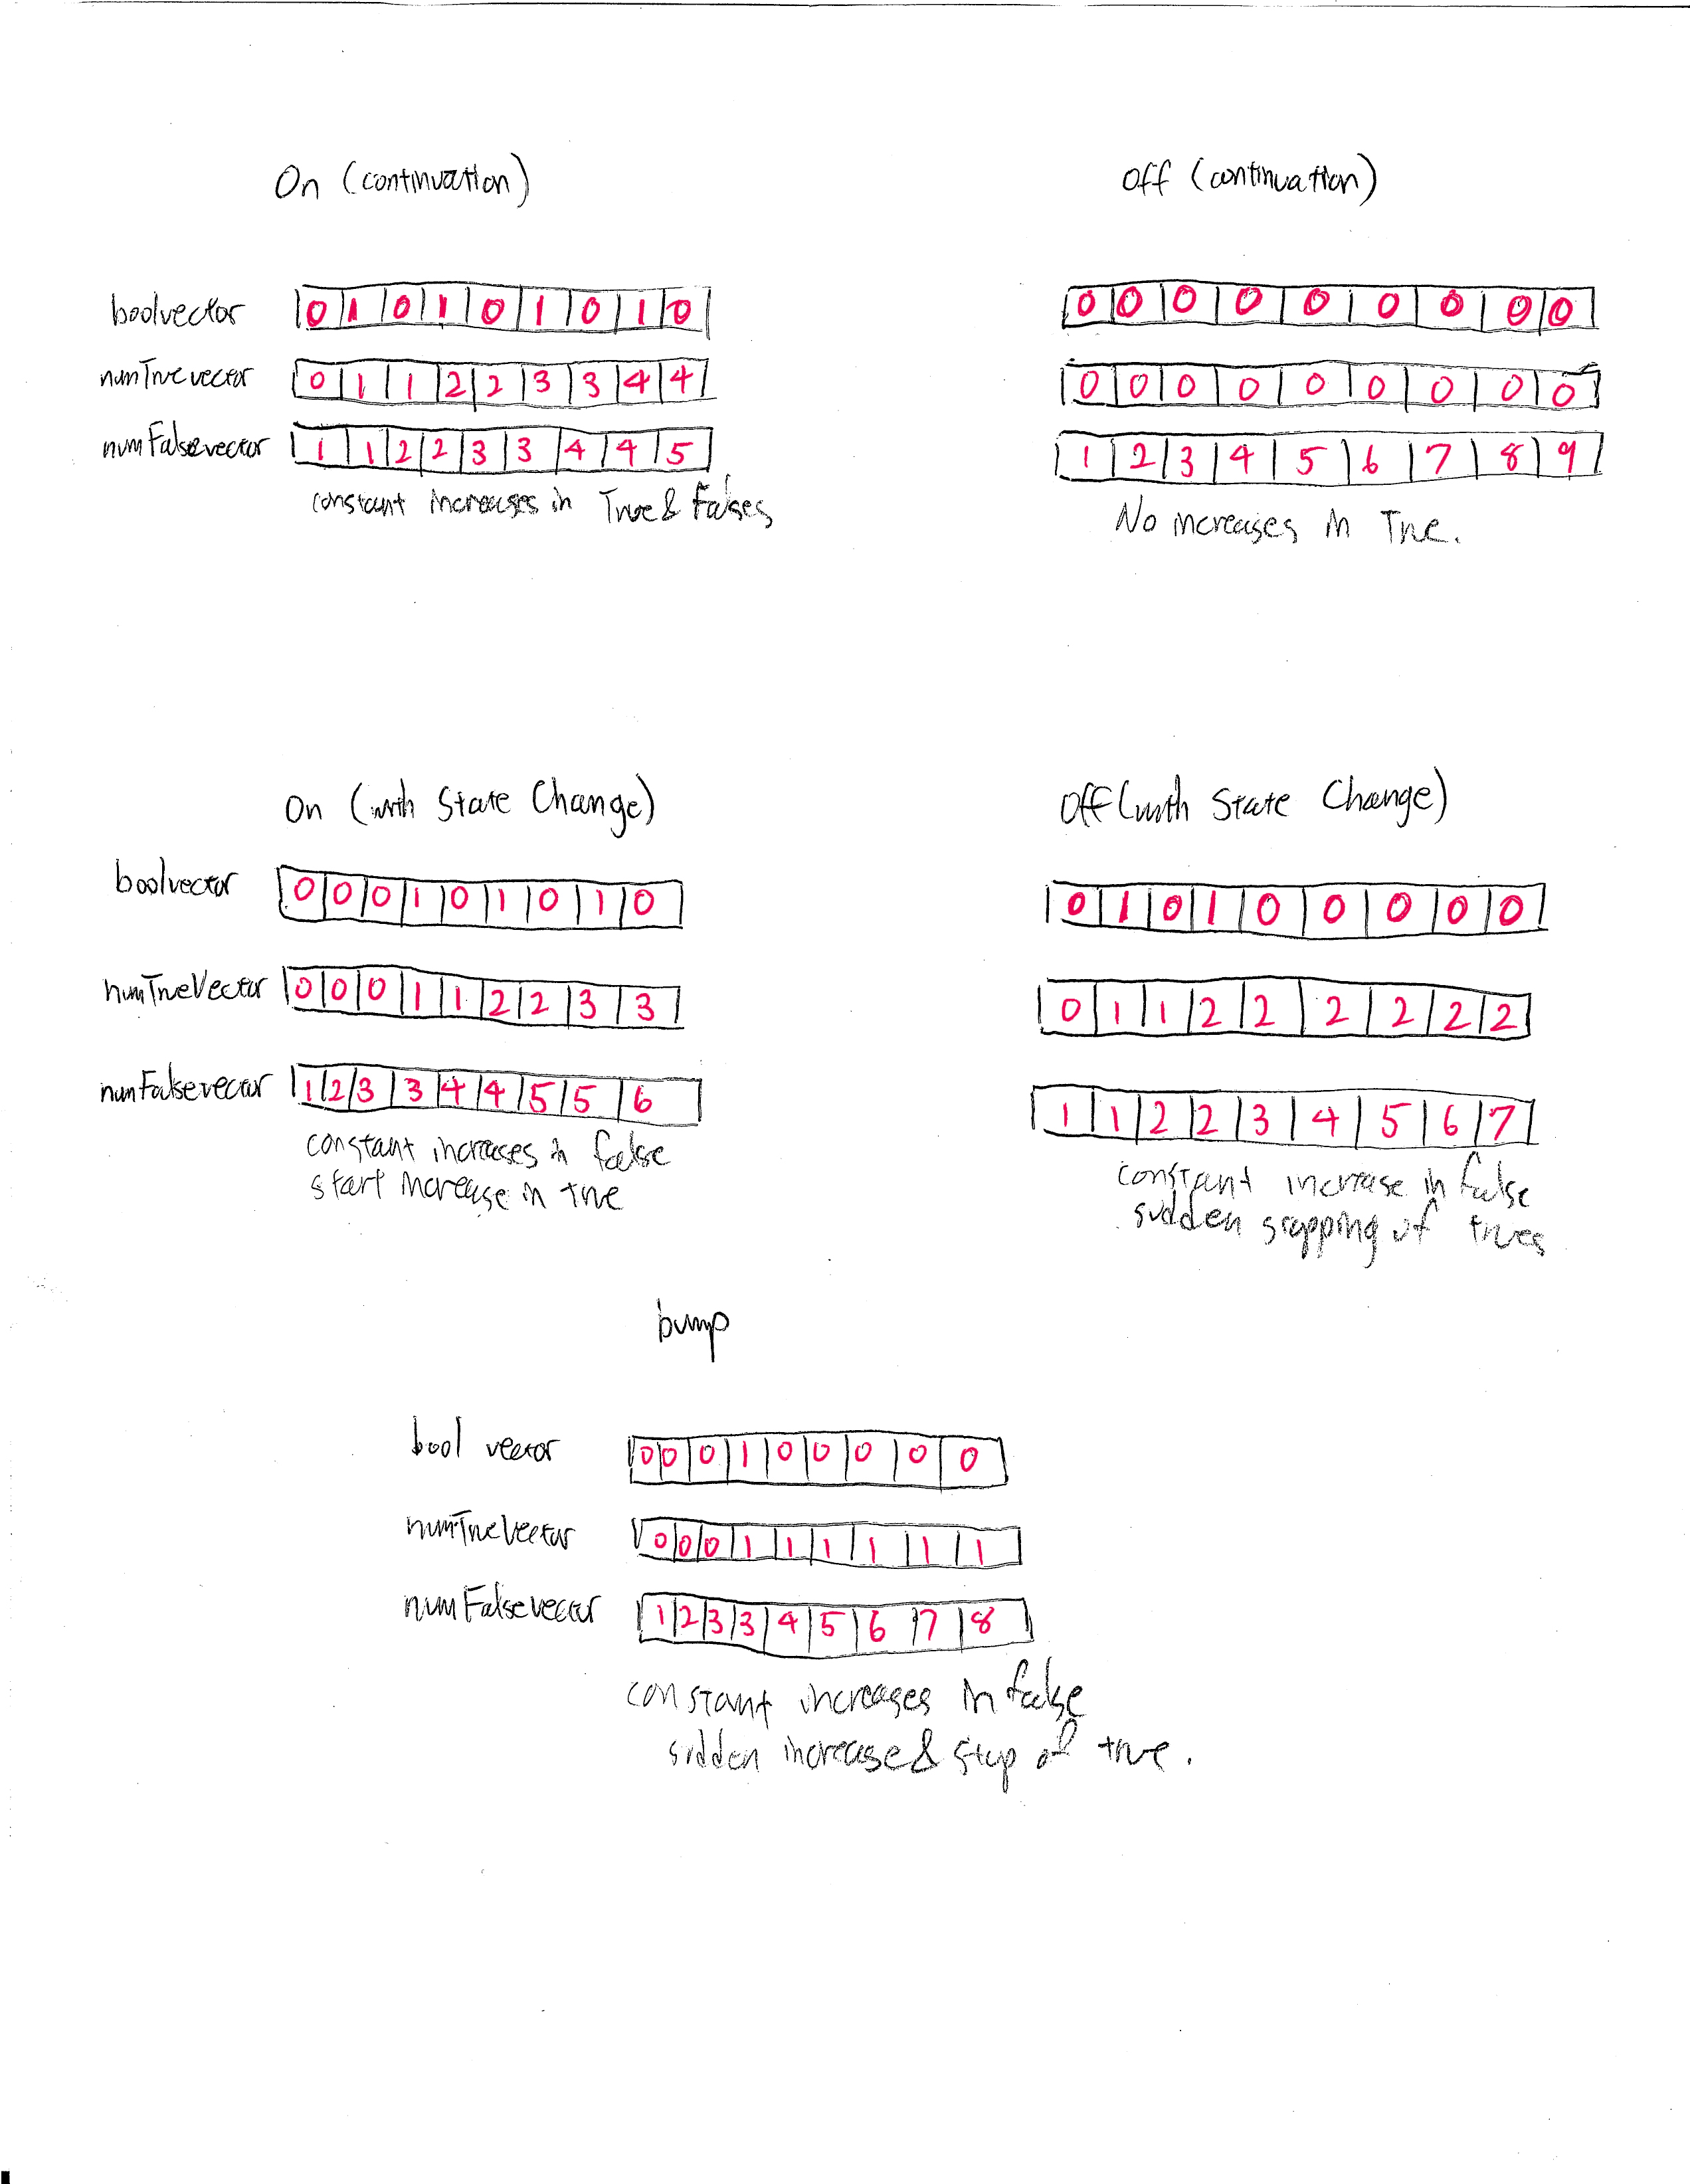 On (continuation)
off (continuation)
boolvector 0 1 0 1 0 1 0 1 0
numTruevector 0 1 1 2 2 3 3 4 4
numFalsevector 1 1 2 2 3 3 4 4 5
constant increases in True & Falses
0 0 0 0 0 0 0 0 0
0 0 0 0 0 0 0 0 0
1 2 3 4 5 6 7 8 9
No increases in True.
On (with State Change)
boolvector 0 0 0 1 0 1 0 1 0
numTrueVector 0 0 0 1 1 2 2 3 3
numFalsevector 1 2 3 3 4 4 5 5 6
constant increases in false
start increase in true
off (with State Change)
0 1 0 1 0 0 0 0 0
0 1 1 2 2 2 2 2 2
1 1 2 2 3 4 5 6 7
constant increase in false
sudden stopping of trues
bump
bool vector 0 0 0 1 0 0 0 0 0
numTrueVector 0 0 0 1 1 1 1 1 1
numFalsevector 1 2 3 3 4 5 6 7 8
constant increases in false
sudden increase & stop of true.